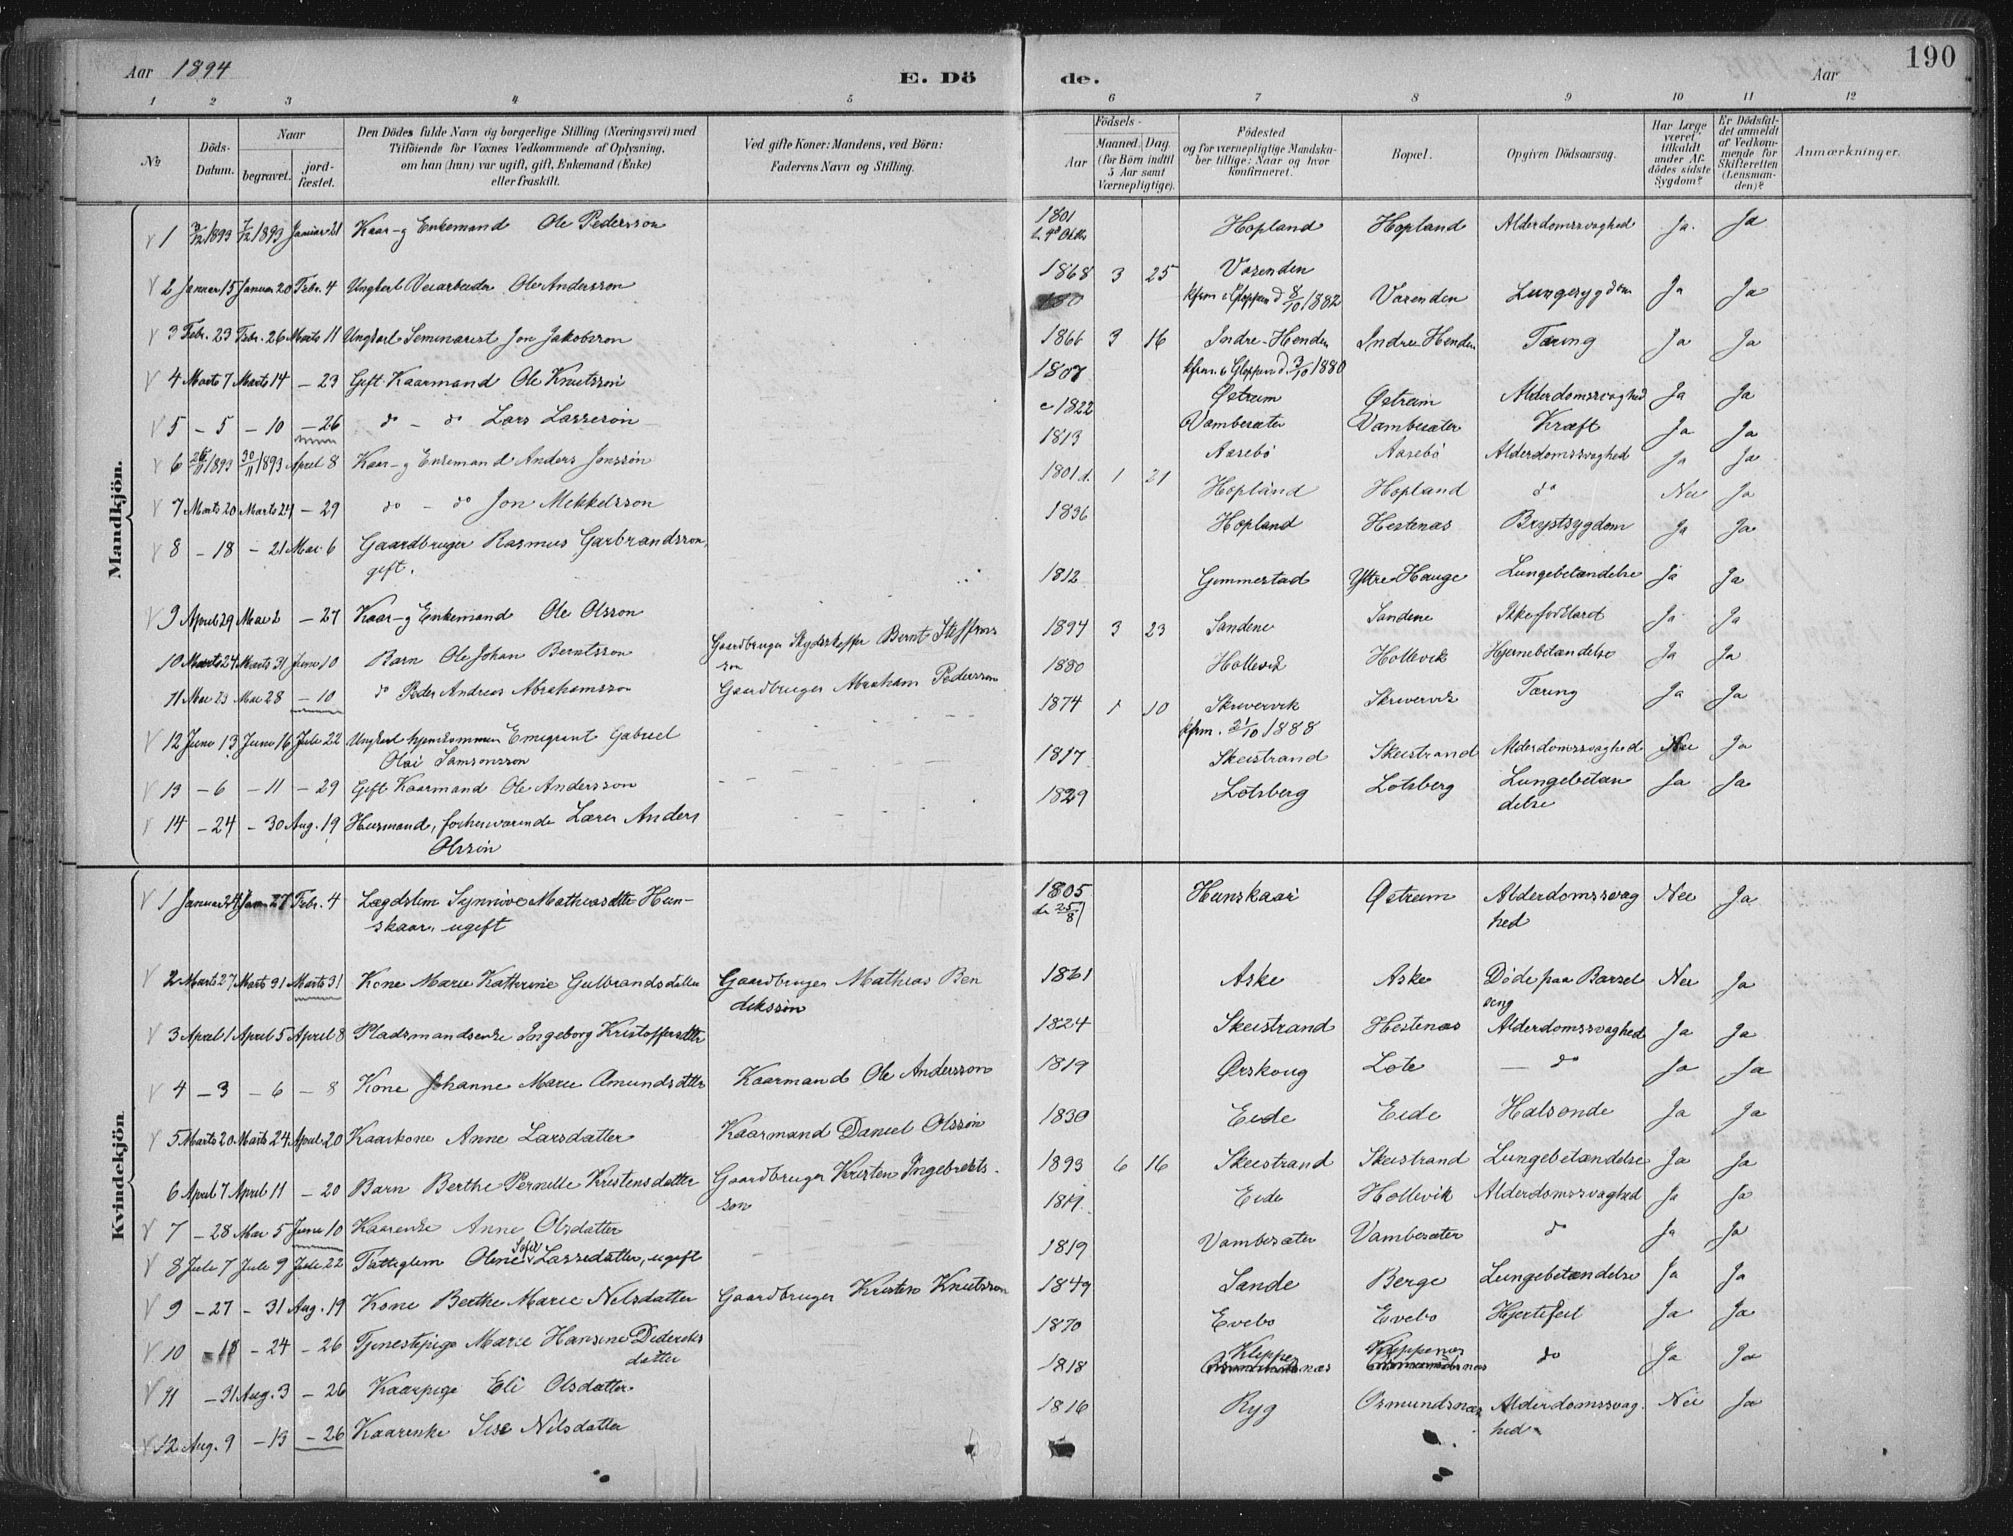 Aar 1894
E. Dö
de.
Aar
190
1 2 3 4 5 6 7 8 9 10 11 12
No
Döds-
Datum.
Naar
begravet.
jord-
fæstet.
Den Dödes fulde Navn og borgerlige Stilling (Næringsvei) med
Tilföiende for Voxnes Vedkommende af Oplysning,
om han (hun) var ugift, gift, Enkemand (Enke)
eller fraskilt.
Ved gifte Koner: Mandens, ved Börn:
Faderens Navn og Stilling.
Födsels-
Aar
Maaned. Dag.
(for Börn indtil
5 Aar samt
Værnepligtige).
Födested
og for værnepligtige Mandska-
ber tillige: Naar og hvor
konfirmeret.
Bopæl.
Opgiven Dödsaarsag.
Har Læge
været
tilkaldt
under Af-
dödes sidste
Sygdom?
Er Dödsfal-
det anmeldt
af Vedkom-
mende for
Skifteretten
(Lensman-
den)?
Anmærkninger.
Mandkjön.
1 2/12 1893 7/12 1893 Januar 21 Kaar- og Enkemand Ole Pedersson 1801 Hopland Hopland Alderdomssvaghed Ja. Ja
2 Januar 15 Januar 20 Febr. 4 Ungkarl Veiarbeider Ole Andersson 1868 3 25 Varenden
kfrm. i Gloppen d 8/10 1882 Varenden Lungesygdom Ja Ja
3 Febr. 23 Febr. 26 Marts 11 Ungkarl Seminarist Jon Jakobsson 1866 3 16 Indre-Henden Indre Henden Tæring Ja Ja
kfrm. i Gloppen d. 3/10 1880
4 Marts 7 Marts 14 - 23 Gift Kaarmand Ole Knutsson 1807 Østrem Østreim Alderdomssvaghed Ja Ja
5 - 5 - 10 - 26 do - do Lars Lassesøn c 1822 Vambesæter Vambesæter Kræft Ja Ja
6 26/11 1893 30/11 1893 April 8 Kaar- og Enkemand Anders Jonssøn 1813 Aasebø Aasebø Alderdomssvaghed Ja Ja
7 Marts 20 Marts 24 - 29 do - do Jon Mekkelsson 1801 d. 1 21 Hopland Hopland do Nei Ja
8 - 18 - 21 Mai 6 Gaardbruger Rasmus Garbrandsson,
gift. 1836 Hopland Hestenæs Brystsygdom Ja Ja
9 April 29 Mai 2 - 27 Kaar- og Enkemand Ole Olsson 1812 Gimmestad Yttre Hauge Lungebetændelse Ja Ja
10 Marts 24 Marts 31 Juni 10 Barn Ole Johan Berntsson Gaardbruger Skydsskaffer Bernt Steffens
son 1894 3 23 Sandene Sandene Ikke forklaret Ja Ja
11 Mai 23 Mai 28 - 10 do Peder Andreas Abrahamsson Gaardbruger Abraham Pedersson 1880 Hollevik Hollevik Hjernebetændelse Ja Ja
12 Juni 13 Juni 16 Juli 22 Ungkarl hjemkommen Emigrant Gabriel
Olai Samsonsson 1874 1 10 Skrivervik
kfrm. 21/10 1888 Skrivervik Tæring Ja Ja
13 - 6 - 11 - 29 Gift Kaarmand Ole Andersson 1817 Skeistrand Skeistrand Alderdomssvaghed Nei Ja
14 - 24 - 30 Aug. 19 Husmand, forhenværende Lærer Anders
Olssøn 1829 Lotsberg Lotsberg Lungebetæn
delse Ja Ja
Kvindekjön
1 Januar 24 Janr. 27 Febr. 4 Lægdslem Synnive Mathiasdtter Hun-
skaar, ugift 1805
da 25/8 Hunskaar Østrem Alderdomssvag
hed Nei Ja
2 Marts 27 Marts 31 Marts 31 Kone Marie Kathrine Gulbrandsdatter Gaardbruger Mathias Ben
dikssøn 1861 Aske Aske Døde paa Barsel
seng Nei Ja
3 April 1 April 5 April 8 Pladsmandsenke Ingeborg Kristoffersdtter 1824 Skeistrand Hestenæs Alderdomssvaghed Ja Ja
4 - 3 - 6 - 8 Kone Johanne Marie Amundsdatter Kaarmand Ole Andersson 1819 Ørskoug Lote - do Ja Ja
5 Marts 20 Marts 24 April 20 Kaarkone Anne Larsdatter Kaarmand Daniel Olssøn 1830 Eide Eide Halsonde Ja Ja
6 April 7 April 11 - 20 Barn Berthe Pernille Kristensdatter Gaardbruger Kristen Ingebrikts-
søn 1893 6 16 Skeistrand Skeistrand Lungebetændelse Ja Ja
7 - 28 Mai 5 Juni 10 Kaarenke Anne Olsdatter 1819. Eide Hollevik Alderdomssvaghed Ja Ja
8 Juli 7 Juli 9 Juli 22 Fattiglem Oline Sofie Lassedatter, ugift 1819 Vambesæter Vambesæter do Ja Ja
9 - 27 - 31 Aug. 19 Kone Berthe Marie Nilsdatter Gaardbruger Kristen Knutsson 1849 Sande Berge Lungebetændelse Ja Ja
10 - 18 - 24 - 26 Tjenestpige Marie Hansine Dideriks
datter 1870 Evebo Evebo Hjertefeil Ja Ja
11 - 31 Aug. 3 - 26 Kaarpige Eli Olsdatter 1818 Kleppe Kleppenæs do Ja Ja
12 Aug. 9 - 13 - 26 Kaarenke Sise Nilsdatter 1816 Ryg Osmundsnæs Alderdomssvag-
hed Nei Ja